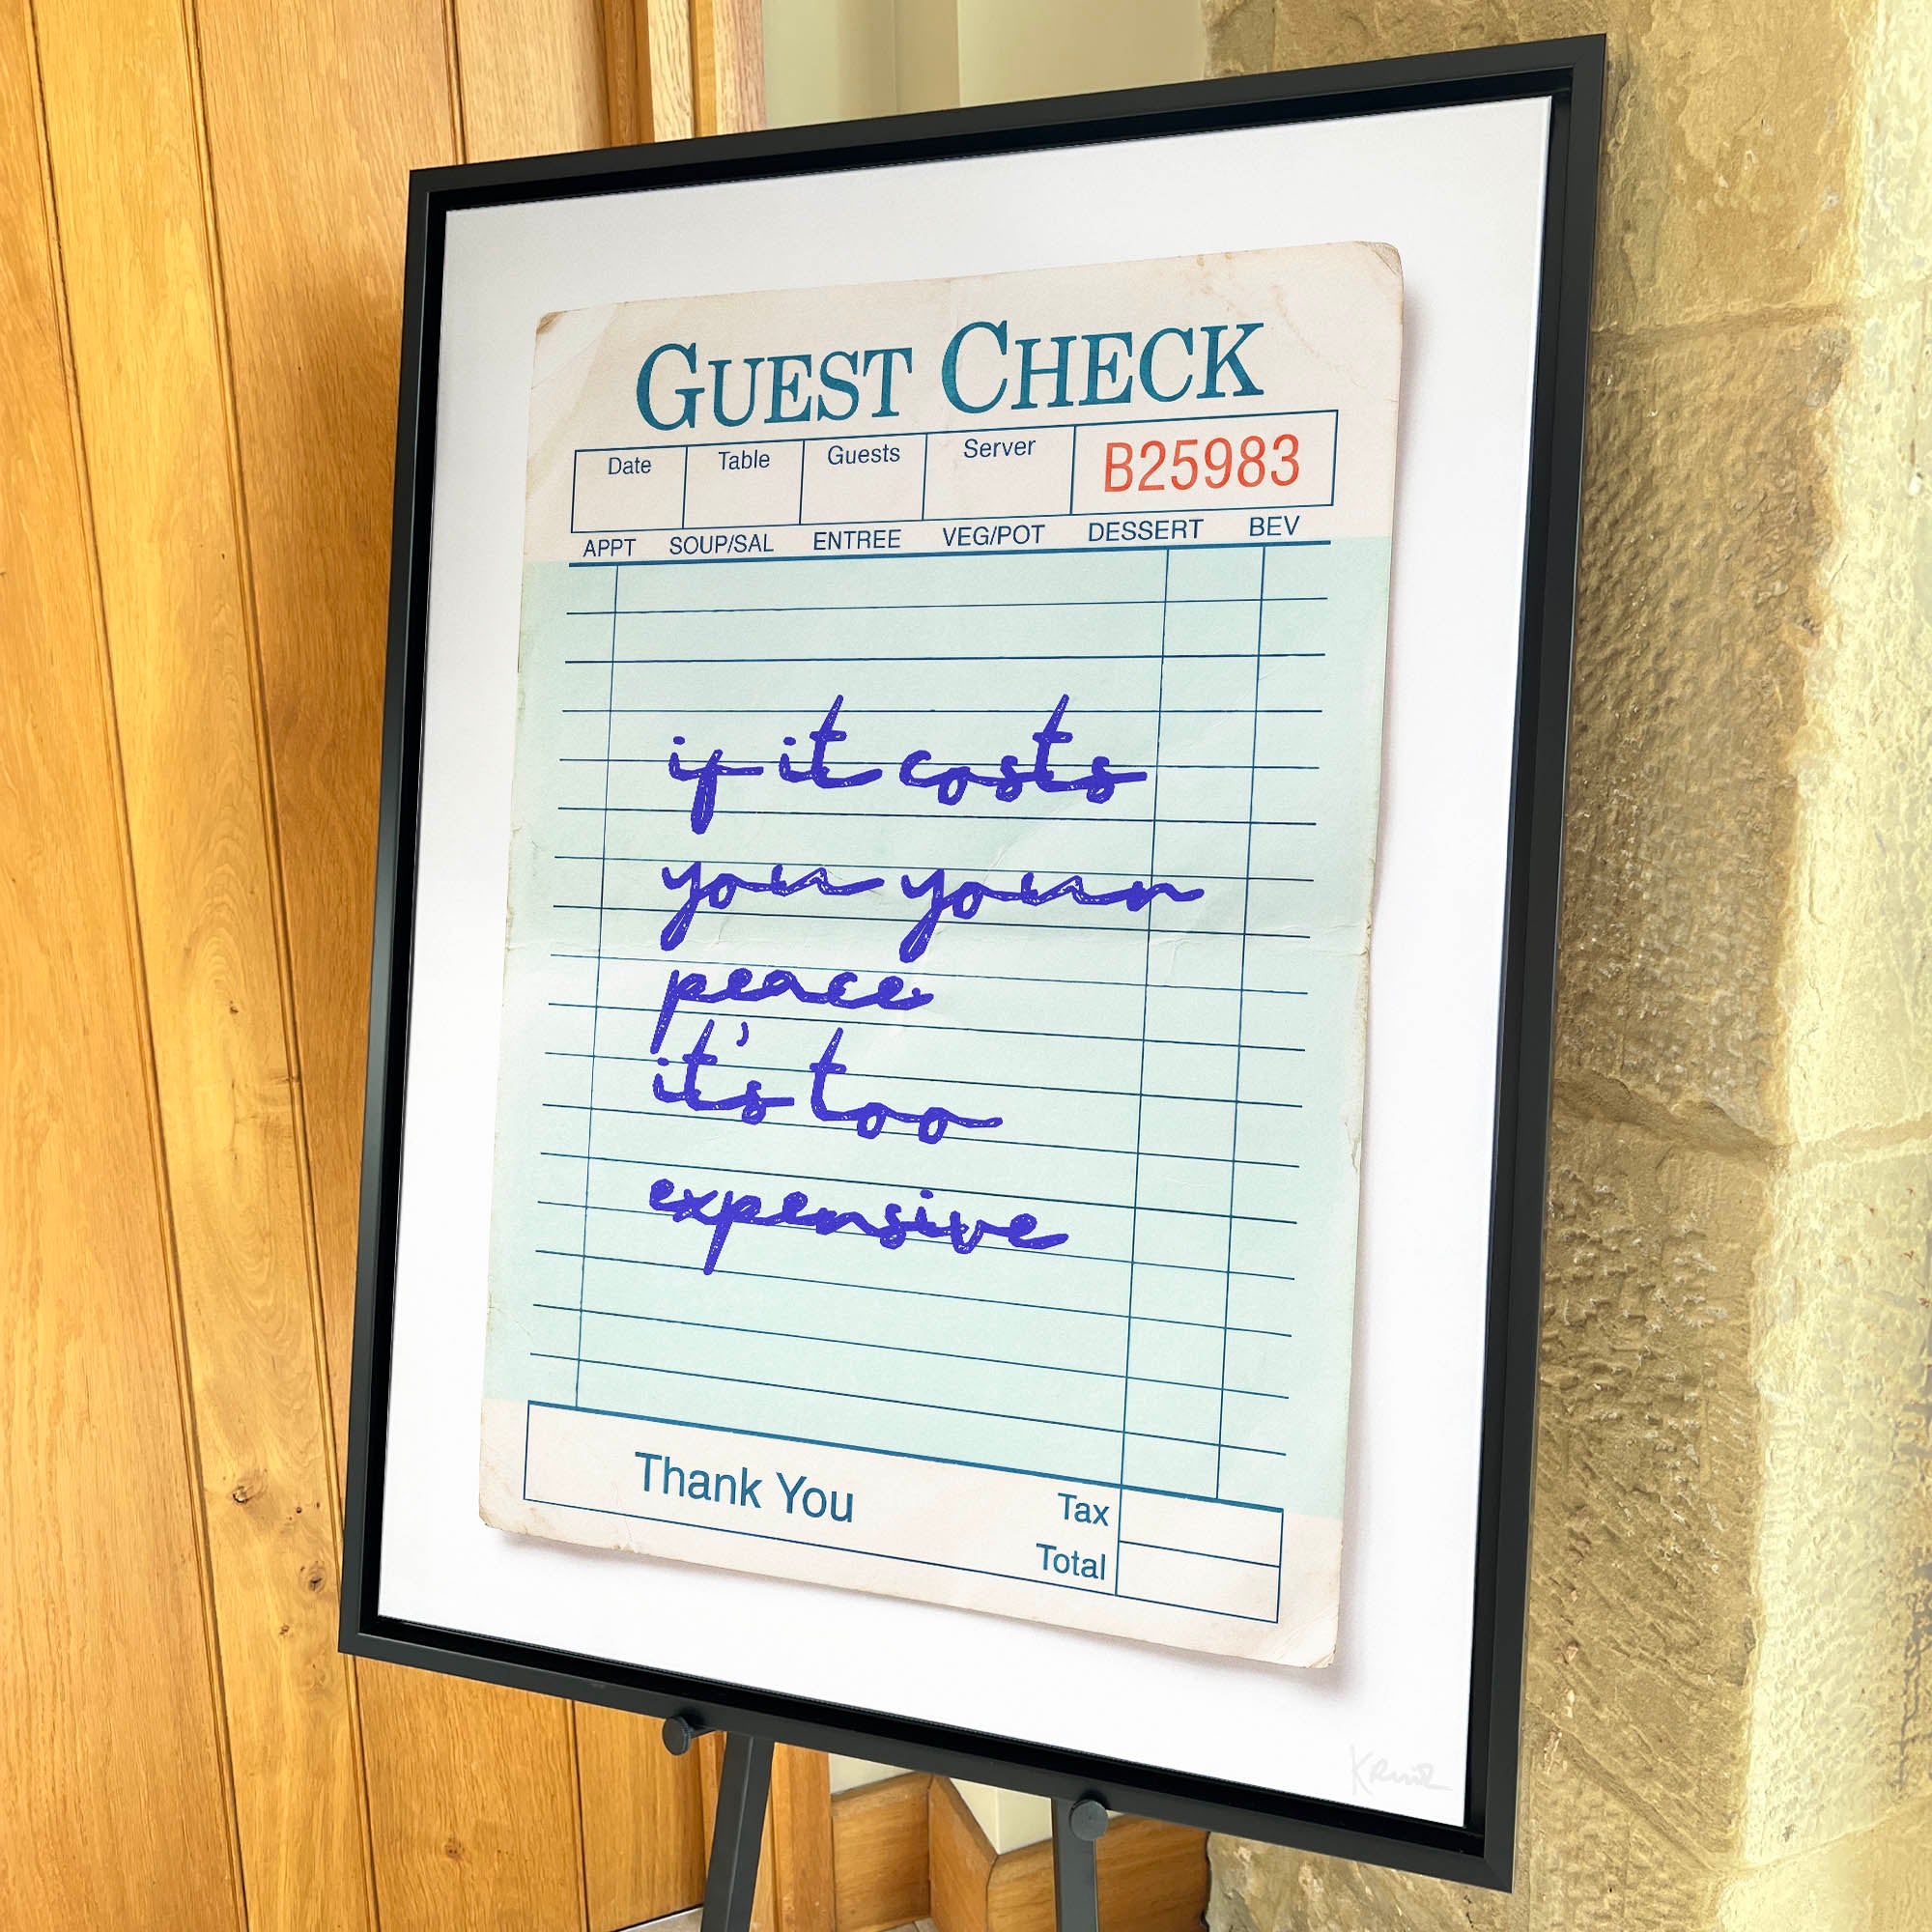 GUEST CHECK
Date Table Guests Server B25983
APPT SOUP/SAL ENTREE VEG/POT DESSERT BEV
if it costs
you your
peace
it's too
expensive
Thank You Tax
Total